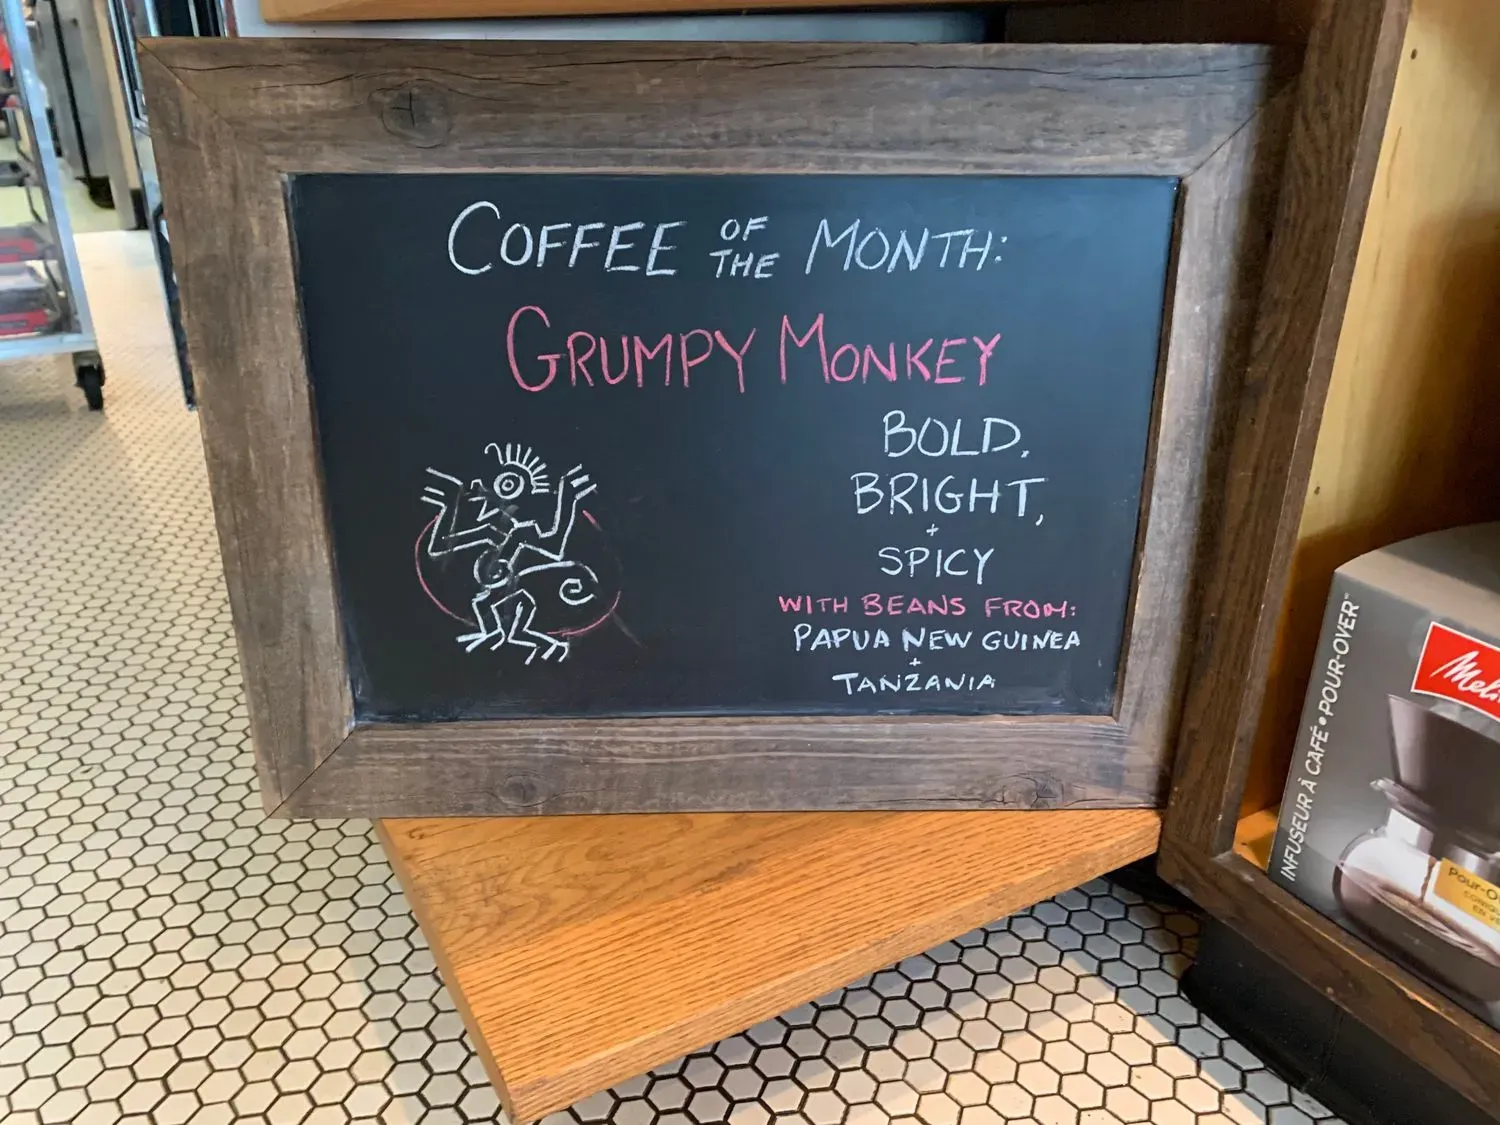 COFFEE OF THE MONTH:
GRUMPY MONKEY
BOLD,
BRIGHT,
+
SPICY
WITH BEANS FROM:
PAPUA NEW GUINEA
+
TANZANIA
INFUSEUR À CAFÉ • POUR-OVER™